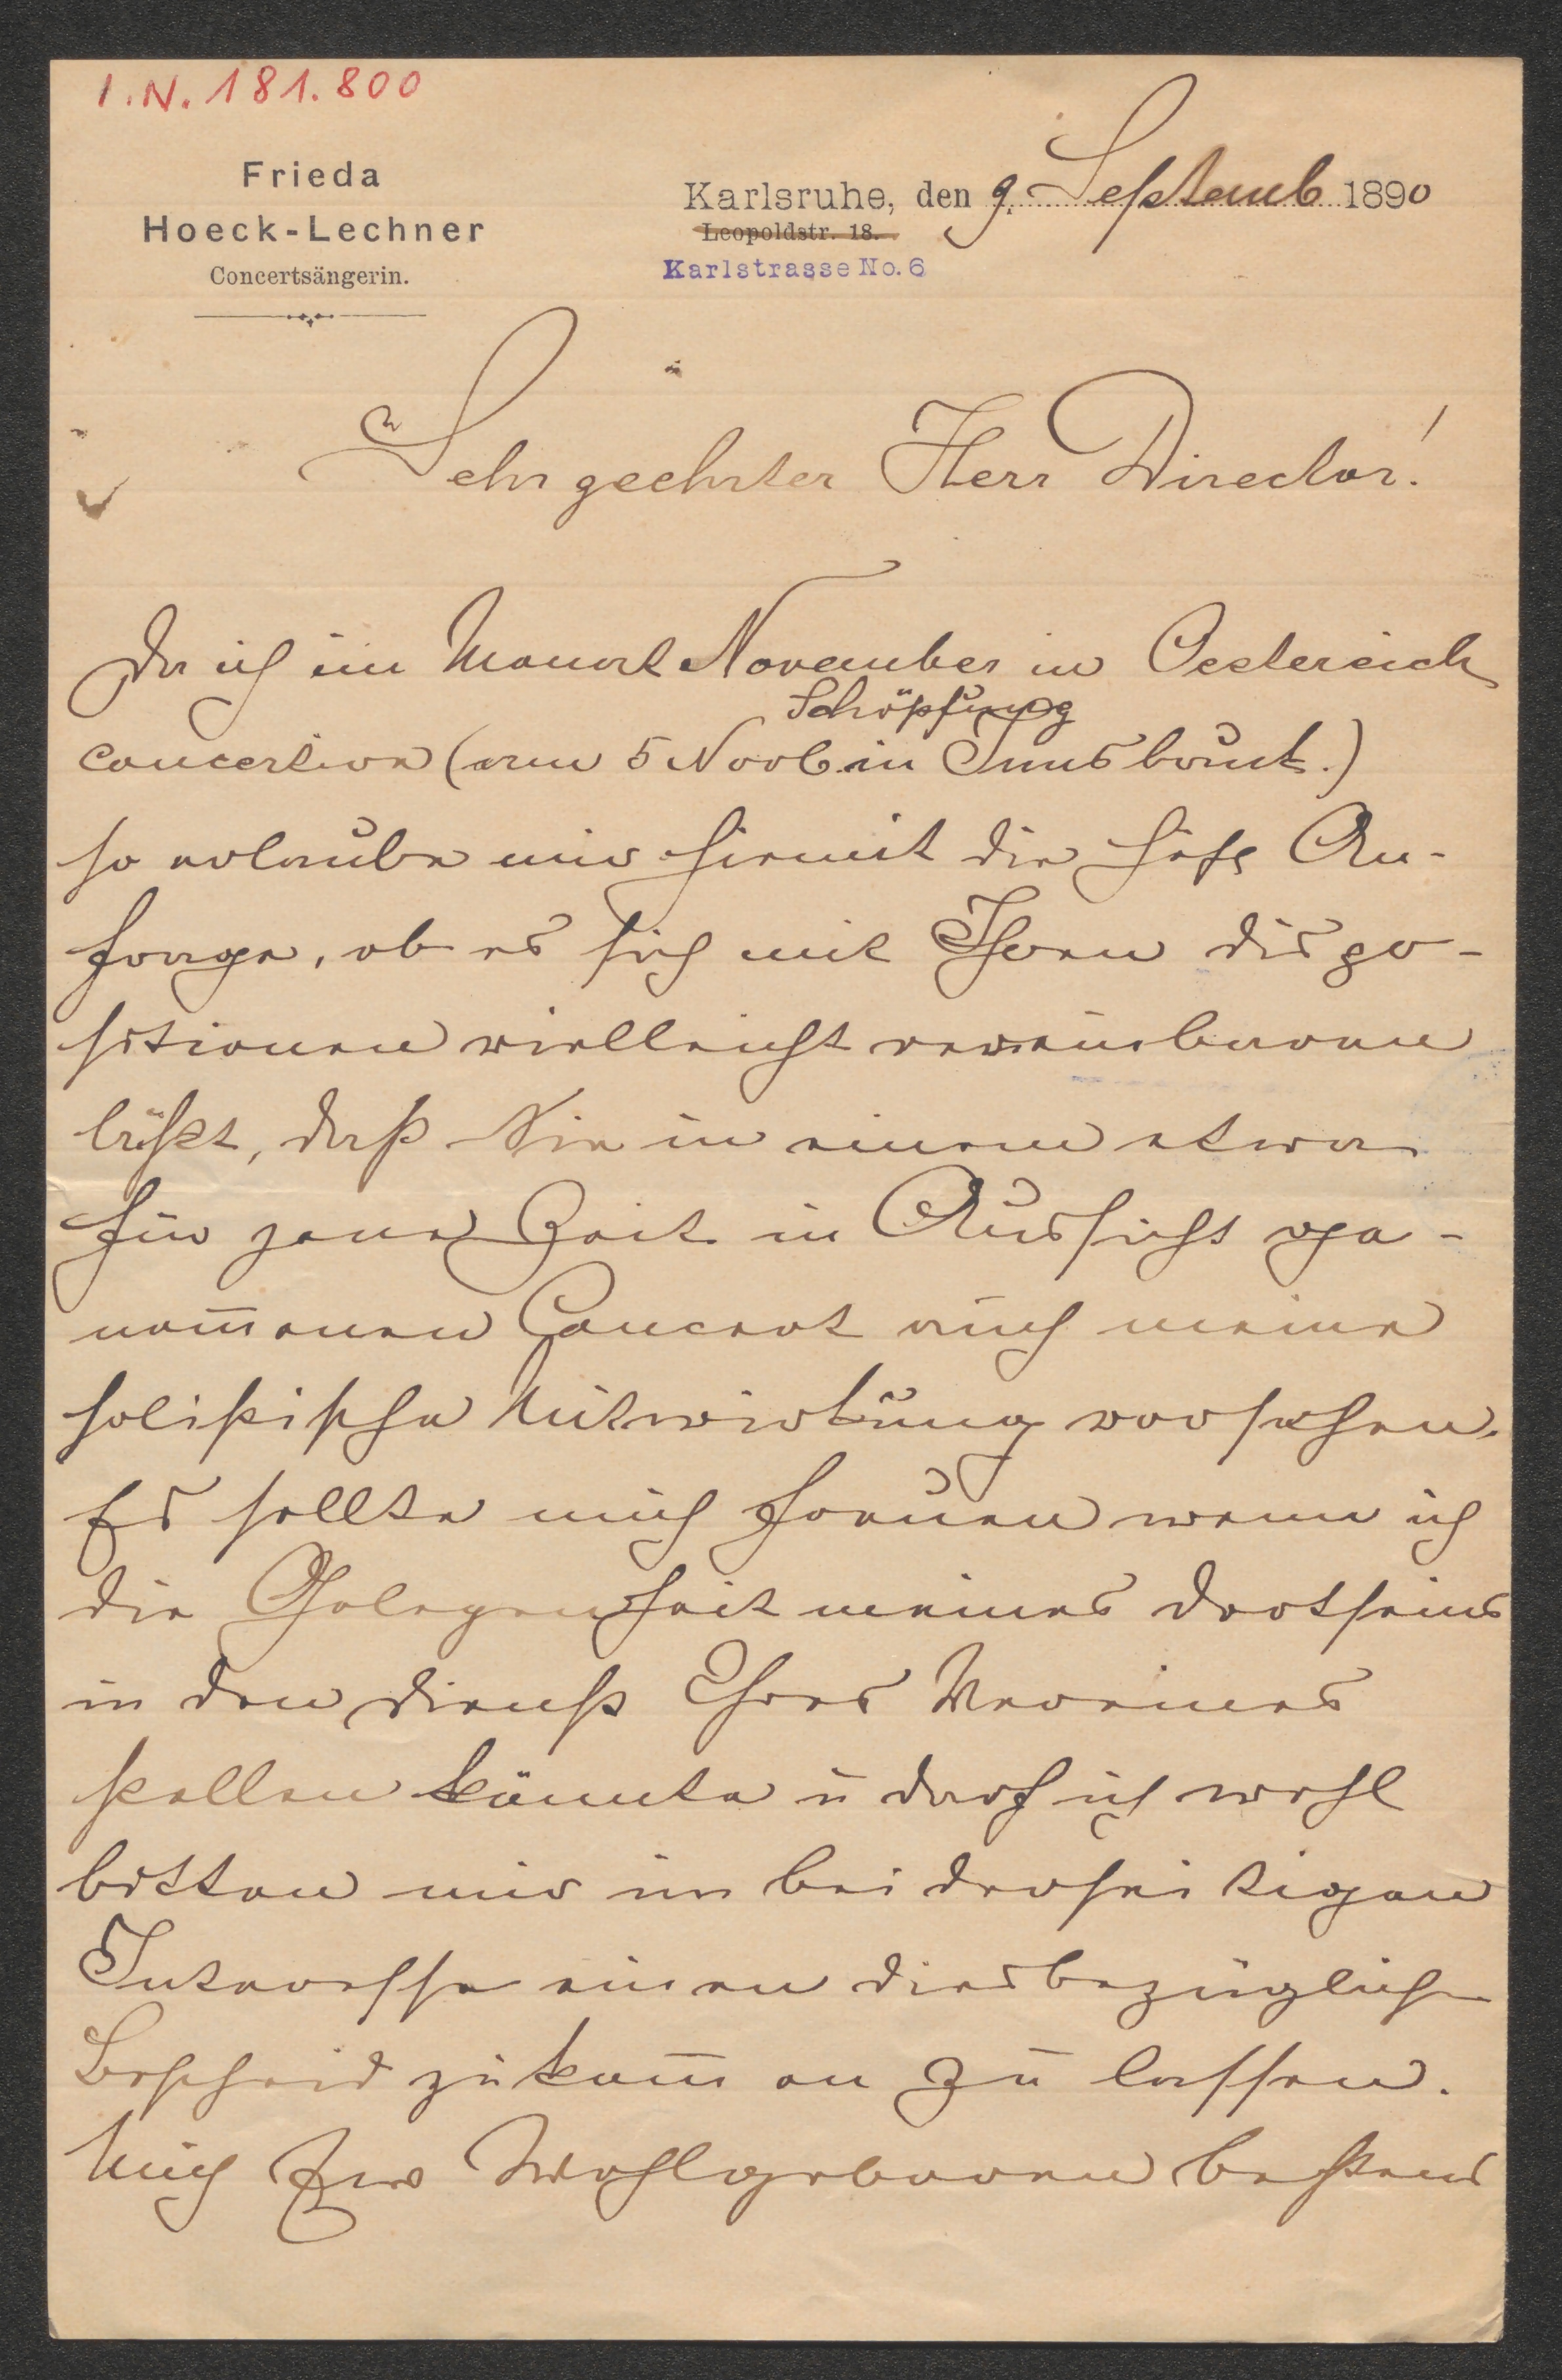 I.N. 181.800
Frieda
Hoeck-Lechner
Concertsängerin.
Karlsruhe, den 9. Septemb 1890
Leopoldstr. 18.
Karlstrasse No. 6
Sehr geehrter Herr Director!
Da ich im Monat November in Oestereich
Schöpfung
concertire (am 5 Novb. in Innsbruck.)
so erlaube mir hiermit die höfl An-
frage, ob es sich mit Ihren Dispo-
sitionen vielleicht vereinbaren
läßt, daß Sie in einem etwa
für jene Zeit in Aussicht ge-
nom̅enen Concert auch meine
solistische Mitwirkung vorsehen.
Es sollte mich freuen wenn ich
die Gelegenheit meines Dortseins
in den Dienst Ihres Vereines
stellen könnte u darf ich wohl
bitten mir im beiderseitigen
Interesse einen diesbezüglichen
Bescheid zukom̅en zu lassen.
Mich Euer Wohlgeboren bestens